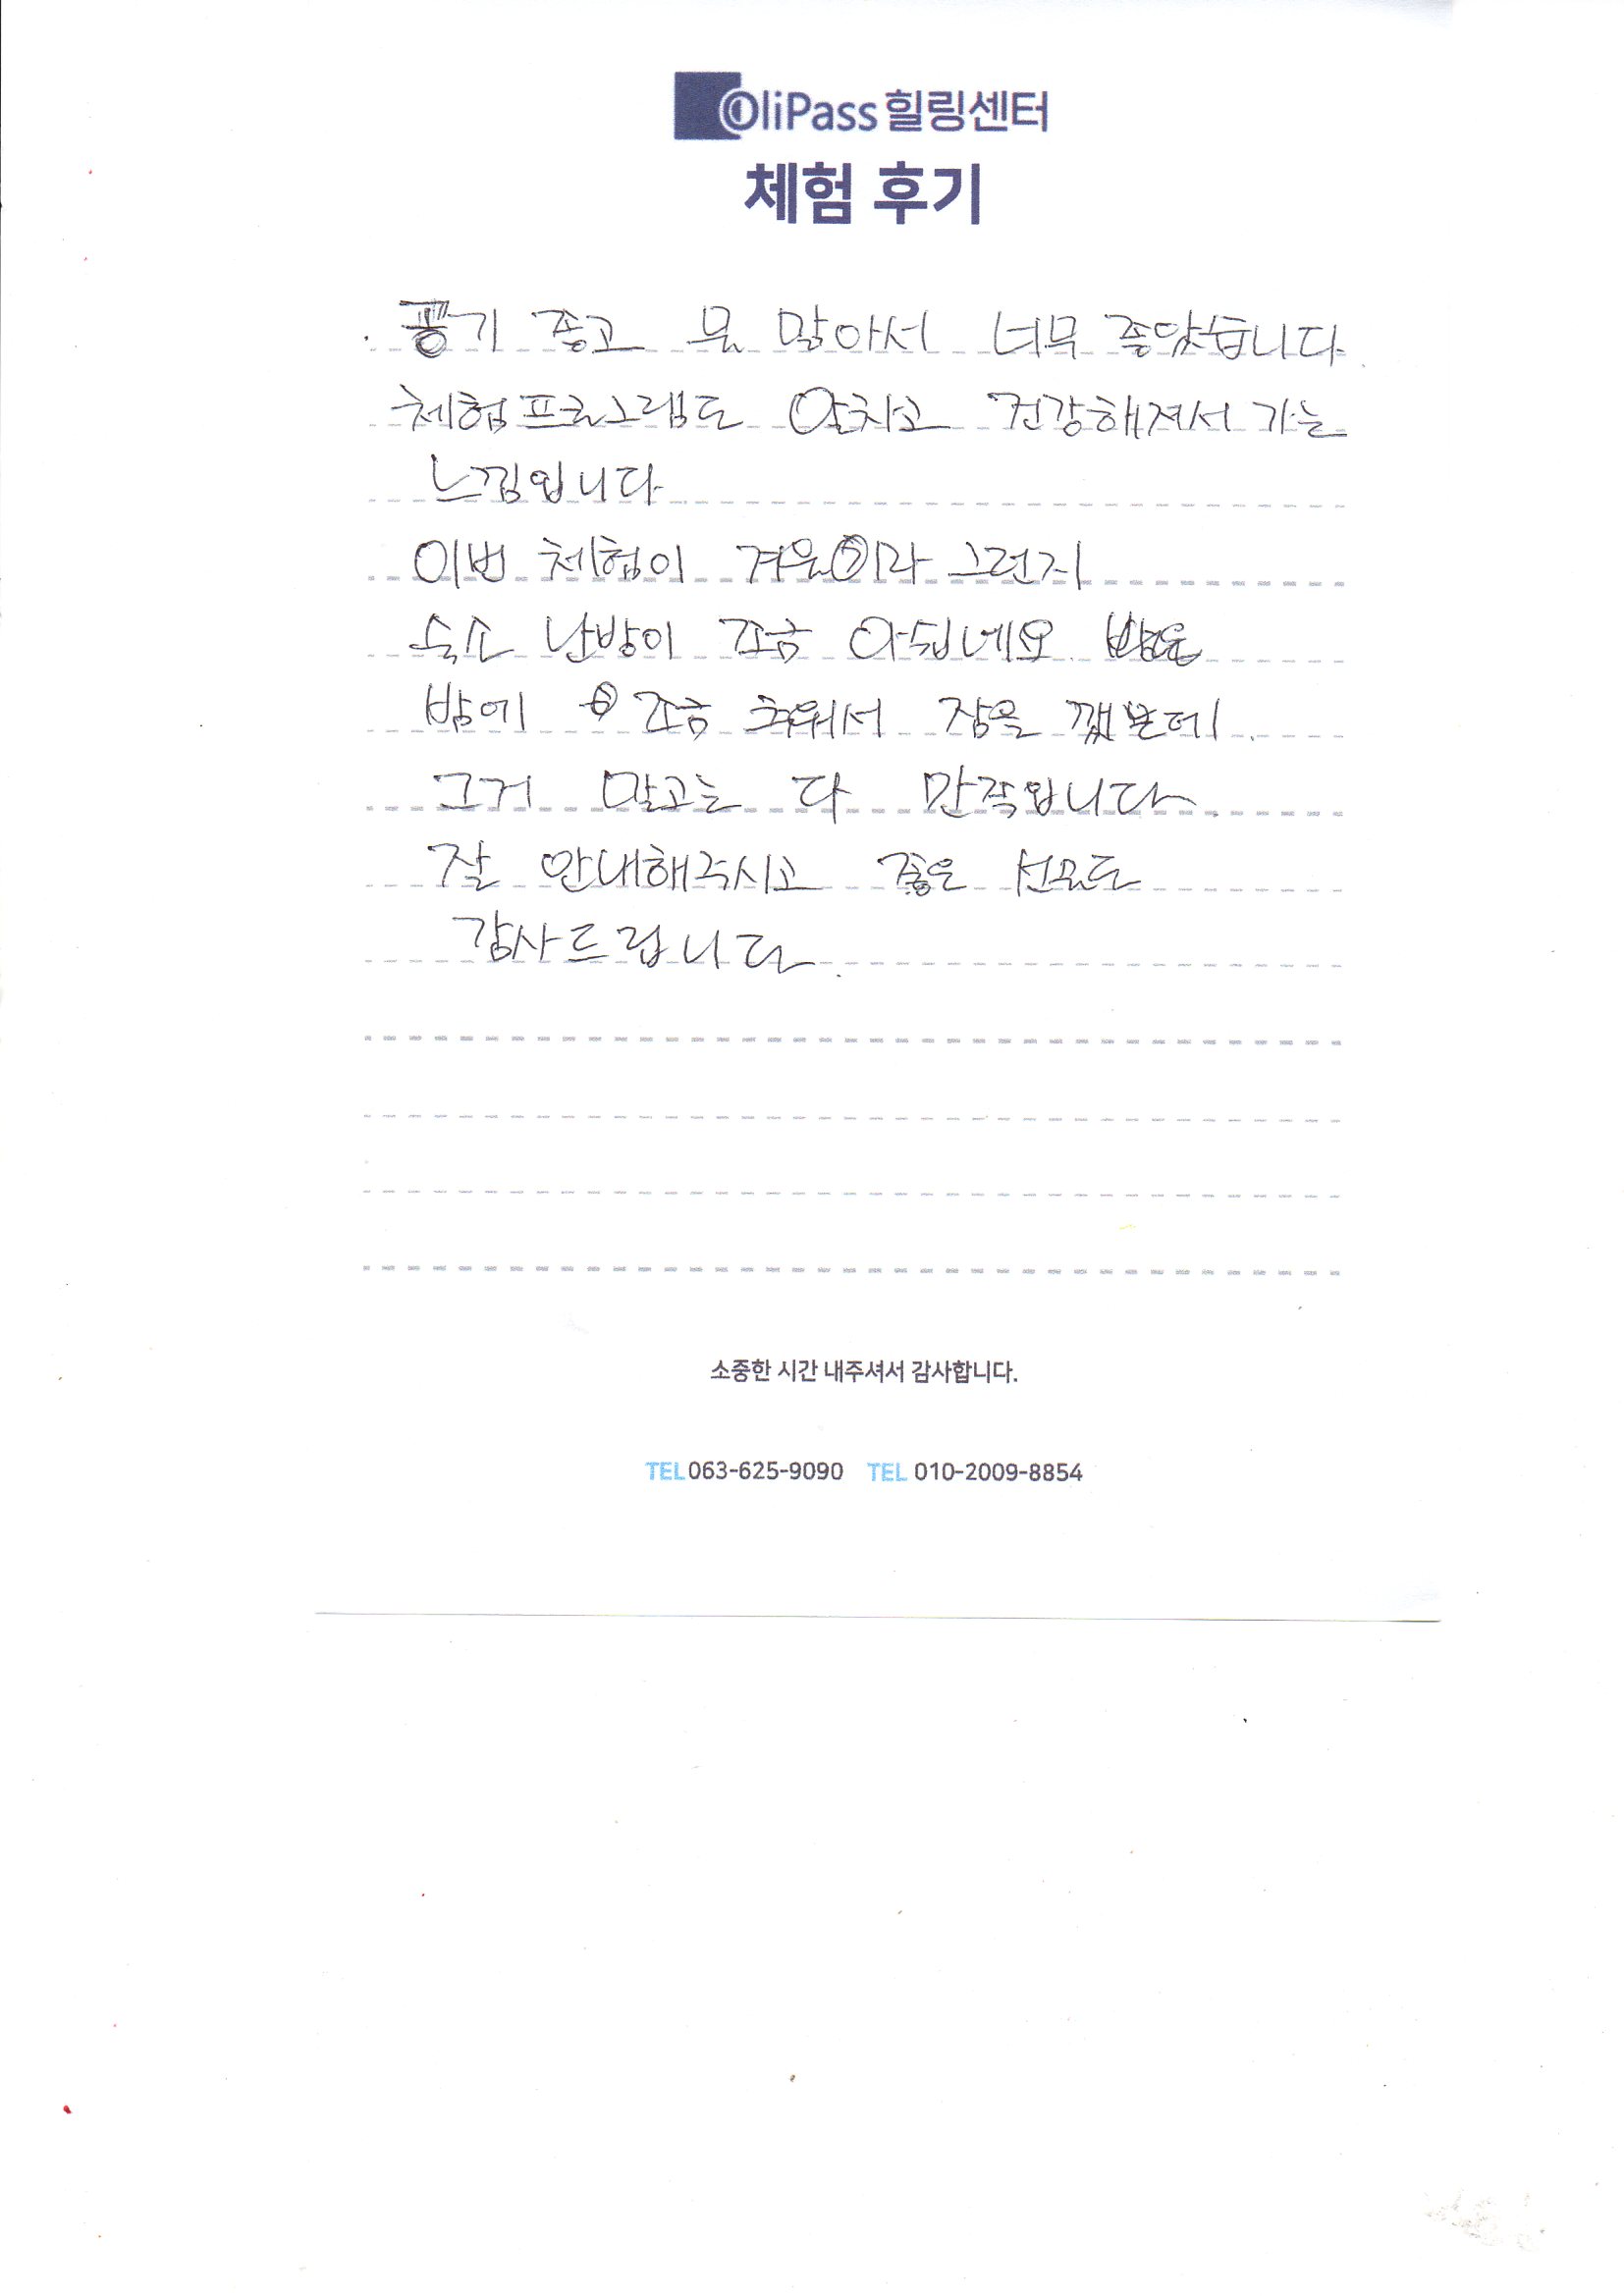 OliPass 힐링센터
체험 후기
공기 좋고 물 맑아서 너무 좋았습니다.
체험프로그램도 알차고 건강해져서 가는
느낌입니다
이번 체험이 겨울이라 그런지
숙소 난방이 조금 아쉽네요
밤에 조금 추워서 잠을 깼는데.
그거 말고는 다 만족입니다.
잘 안내해주시고 좋은 선물도
감사드립니다.
소중한 시간 내주셔서 감사합니다.
TEL 063-625-9090 TEL 010-2009-8854